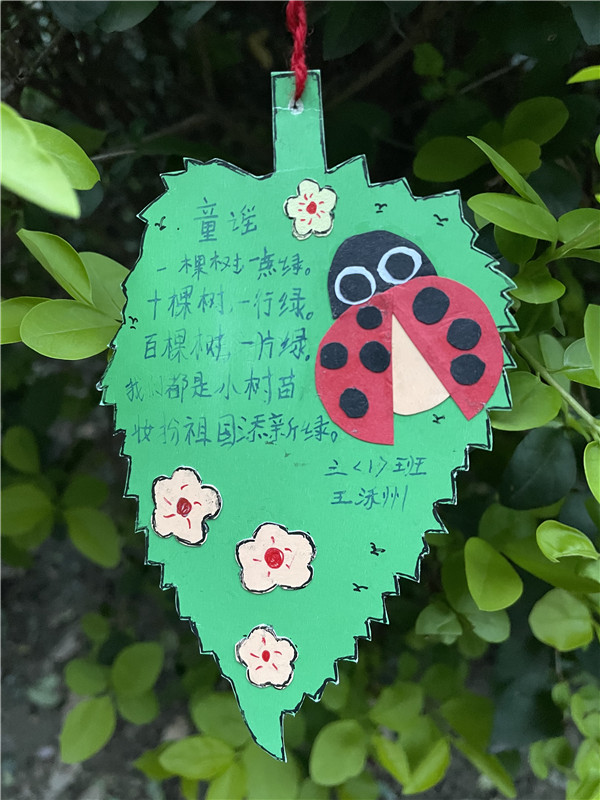 童谣
一棵树，一点绿。
十棵树，一行绿。
百棵树，一片绿，
我们都是小树苗
妆扮祖国添新绿。
三〈1〉班
王泳州